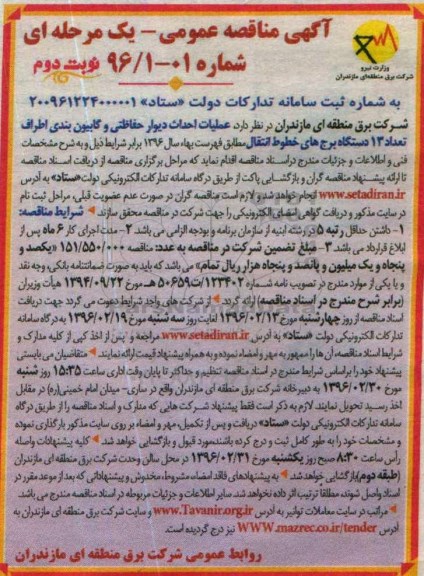 آگهی مناقصه عمومی - یک مرحله ای
شماره ۰۱-۹۶/۱ نوبت دوم
وزارت نیرو
شرکت برق منطقه‌ای مازندران
به شماره ثبت سامانه تدارکات دولت «ستاد» ۲۰۰۹۶۱۲۲۴۰۰۰۰۰۱
شرکت برق منطقه ای مازندران در نظر دارد، عملیات احداث دیوار حفاظتی و گابیون بندی اطراف
تعداد ۱۳ دستگاه برج های خطوط انتقال مطابق فهرست بهاء سال ۱۳۹۶ برابر شرایط ذیل و به شرح مشخصات
فنی و اطلاعات و جزئیات مندرج در اسناد مناقصه اقدام نماید که مراحل برگزاری مناقصه از دریافت اسناد مناقصه
تا ارائه پیشنهاد مناقصه گران و بازگشایی پاکت از طریق درگاه سامانه تدارکات الکترونیکی دولت «ستاد» به آدرس
www.setadiran.ir انجام خواهد شد و لازم است مناقصه گران در صورت عدم عضویت قبلی، مراحل ثبت نام
در سایت مذکور و دریافت گواهی امضای الکترونیکی را جهت شرکت در مناقصه محقق سازند. شرایط مناقصه:
۱- داشتن حداقل رتبه ۵ در رشته ابنیه از سازمان برنامه و بودجه الزامی می باشد ۲- مدت اجرای کار ۶ ماه پس از
ابلاغ قرارداد می باشد. ۳- مبلغ تضمین شرکت در مناقصه به عدد: مناقصه ۱۵۱/۵۵۰/۰۰۰ «یکصد و
پنجاه و یک میلیون و پانصد و پنجاه هزار ریال تمام» می باشد که باید به صورت ضمانتنامه بانکی، وجه نقد
و یا یکی از موارد مندرج در تصویب نامه شماره ۱۲۳۴۰۲/ت۵۰۶۵۹هـ مورخ ۱۳۹۴/۰۹/۲۲ هیأت وزیران
(برابر شرح مندرج در اسناد مناقصه) ارائه گردد. از شرکت های واجد شرایط دعوت می گردد جهت دریافت
اسناد مناقصه از روز چهارشنبه مورخ ۱۳۹۶/۰۲/۱۳ لغایت روز سه شنبه مورخ ۱۳۹۶/۰۲/۱۹ به درگاه سامانه
تدارکات الکترونیکی دولت «ستاد» به آدرس www.setadiran.ir مراجعه و پس از اخذ کپی از کلیه مدارک و
شرایط اسناد مناقصه، آن ها را ممهور به مهر و امضاء نموده و به همراه پیشنهاد قیمت ارائه نمایند. متقاضیان می بایستی
پیشنهاد خود را بر اساس شرایط مندرج در اسناد مناقصه تنظیم و حداکثر تا پایان وقت اداری ساعت ۱۵:۳۵ روز شنبه
مورخ ۱۳۹۶/۰۲/۳۰ به دبیرخانه شرکت برق منطقه ای مازندران واقع در ساری- میدان امام خمینی(ره) در مقابل
اخذ رسید تحویل نمایند. لازم به ذکر است فقط پیشنهاد شرکت هایی که مدارک و اسناد مناقصه را از طریق درگاه
سامانه تدارکات الکترونیکی دولت «ستاد» دریافت و پس از تکمیل، مهر و امضاء بر روی سایت مذکور بارگذاری نموده
و مشخصات خود را به طور کامل ثبت و درج کرده باشند مورد قبول و بازگشایی خواهد شد. کلیه پیشنهادات واصله
رأس ساعت ۸:۳۰ صبح روز یکشنبه مورخ ۱۳۹۶/۰۲/۳۱ در محل سالن وحدت شرکت برق منطقه ای مازندران
(طبقه دوم) بازگشایی خواهد شد. به پیشنهادهای فاقد امضاء، مشروط، مخدوش و پیشنهاداتی که بعد از موعد مقرر در
اسناد واصل شوند، مطلقا ترتیب اثر داده نخواهد شد. سایر اطلاعات و جزئیات مربوطه در اسناد مناقصه مندرج می باشد.
مراتب در سایت معاملات توانیر به آدرس www.Tavanir.org.ir و سایت شرکت برق منطقه ای مازندران به
آدرس WWW.mazrec.co.ir/tender نیز درج گردیده است.
روابط عمومی شرکت برق منطقه ای مازندران